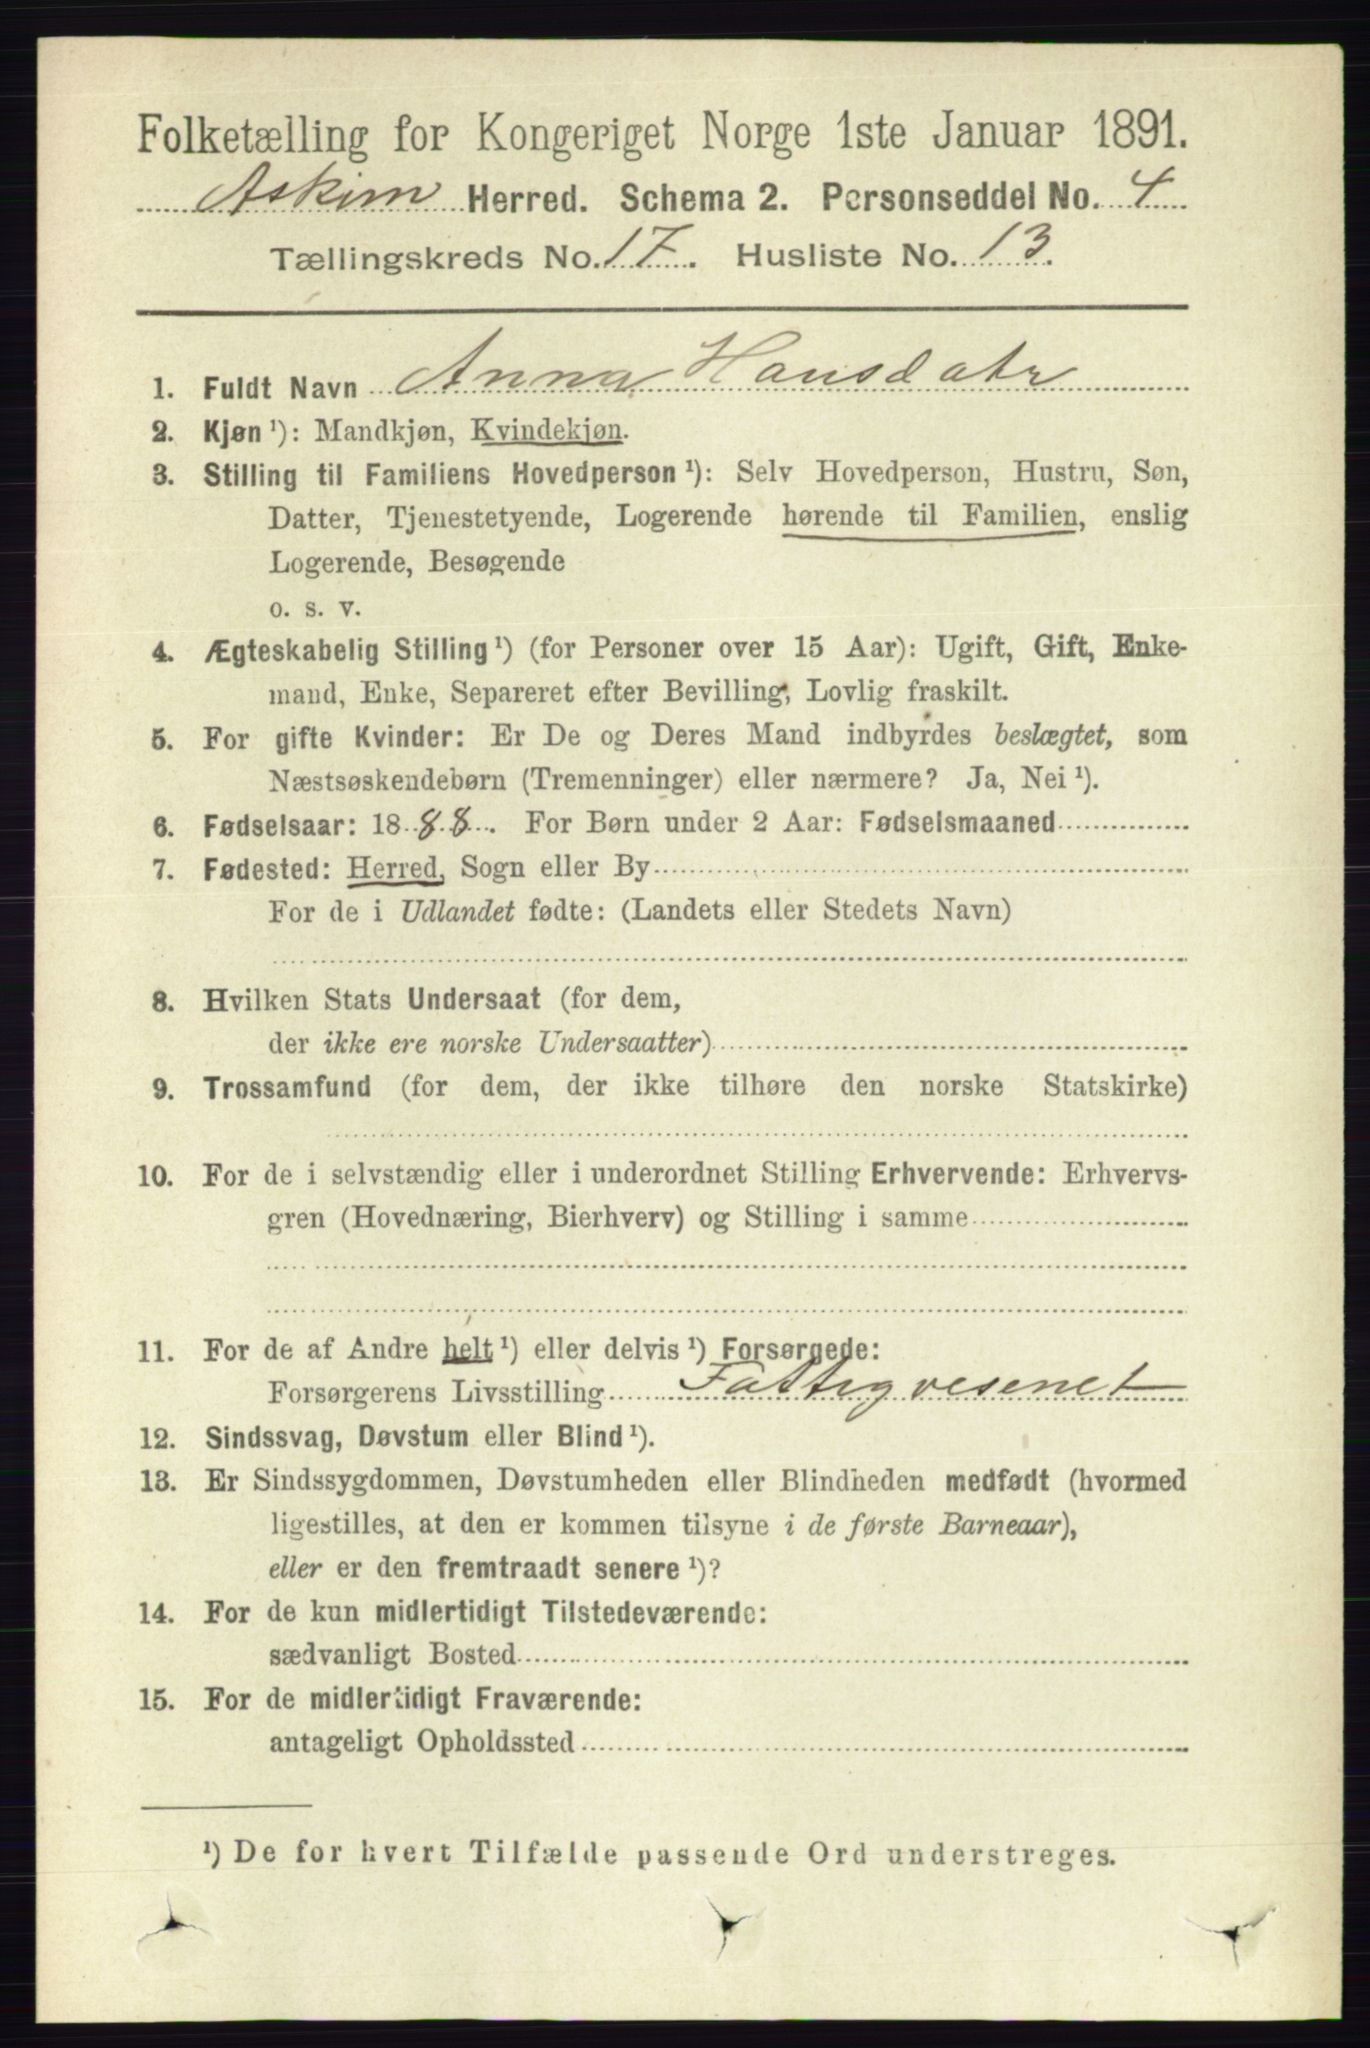 Folketælling for Kongeriget Norge 1ste Januar 1891.
Askim Herred. Schema 2. Personseddel No. 4
Tællingskreds No. 17. Husliste No. 13.
1. Fuldt Navn Anna Hansdatr
2. Kjøn ¹): Mandkjøn, Kvindekjøn.
3. Stilling til Familiens Hovedperson ¹): Selv Hovedperson, Hustru, Søn,
Datter, Tjenestetyende, Logerende hørende til Familien, enslig
Logerende, Besøgende
o. s. v.
4. Ægteskabelig Stilling ¹) (for Personer over 15 Aar): Ugift, Gift, Enke-
mand, Enke, Separeret efter Bevilling, Lovlig fraskilt.
5. For gifte Kvinder: Er De og Deres Mand indbyrdes beslægtet, som
Næstsøskendebørn (Tremenninger) eller nærmere? Ja, Nei ¹).
6. Fødselsaar: 1888. For Børn under 2 Aar: Fødselsmaaned
7. Fødested: Herred, Sogn eller By
For de i Udlandet fødte: (Landets eller Stedets Navn)
8. Hvilken Stats Undersaat (for dem,
der ikke ere norske Undersaatter)
9. Trossamfund (for dem, der ikke tilhøre den norske Statskirke)
10. For de i selvstændig eller i underordnet Stilling Erhvervende: Erhvervs-
gren (Hovednæring, Bierhverv) og Stilling i samme
11. For de af Andre helt ¹) eller delvis ¹) Forsørgede:
Forsørgerens Livsstilling Fattigvesenet
12. Sindssvag, Døvstum eller Blind ¹).
13. Er Sindssygdommen, Døvstumheden eller Blindheden medfødt (hvormed
ligestilles, at den er kommen tilsyne i de første Barneaar),
eller er den fremtraadt senere ¹)?
14. For de kun midlertidigt Tilstedeværende:
sædvanligt Bosted
15. For de midlertidigt Fraværende:
antageligt Opholdssted
¹) De for hvert Tilfælde passende Ord understreges.